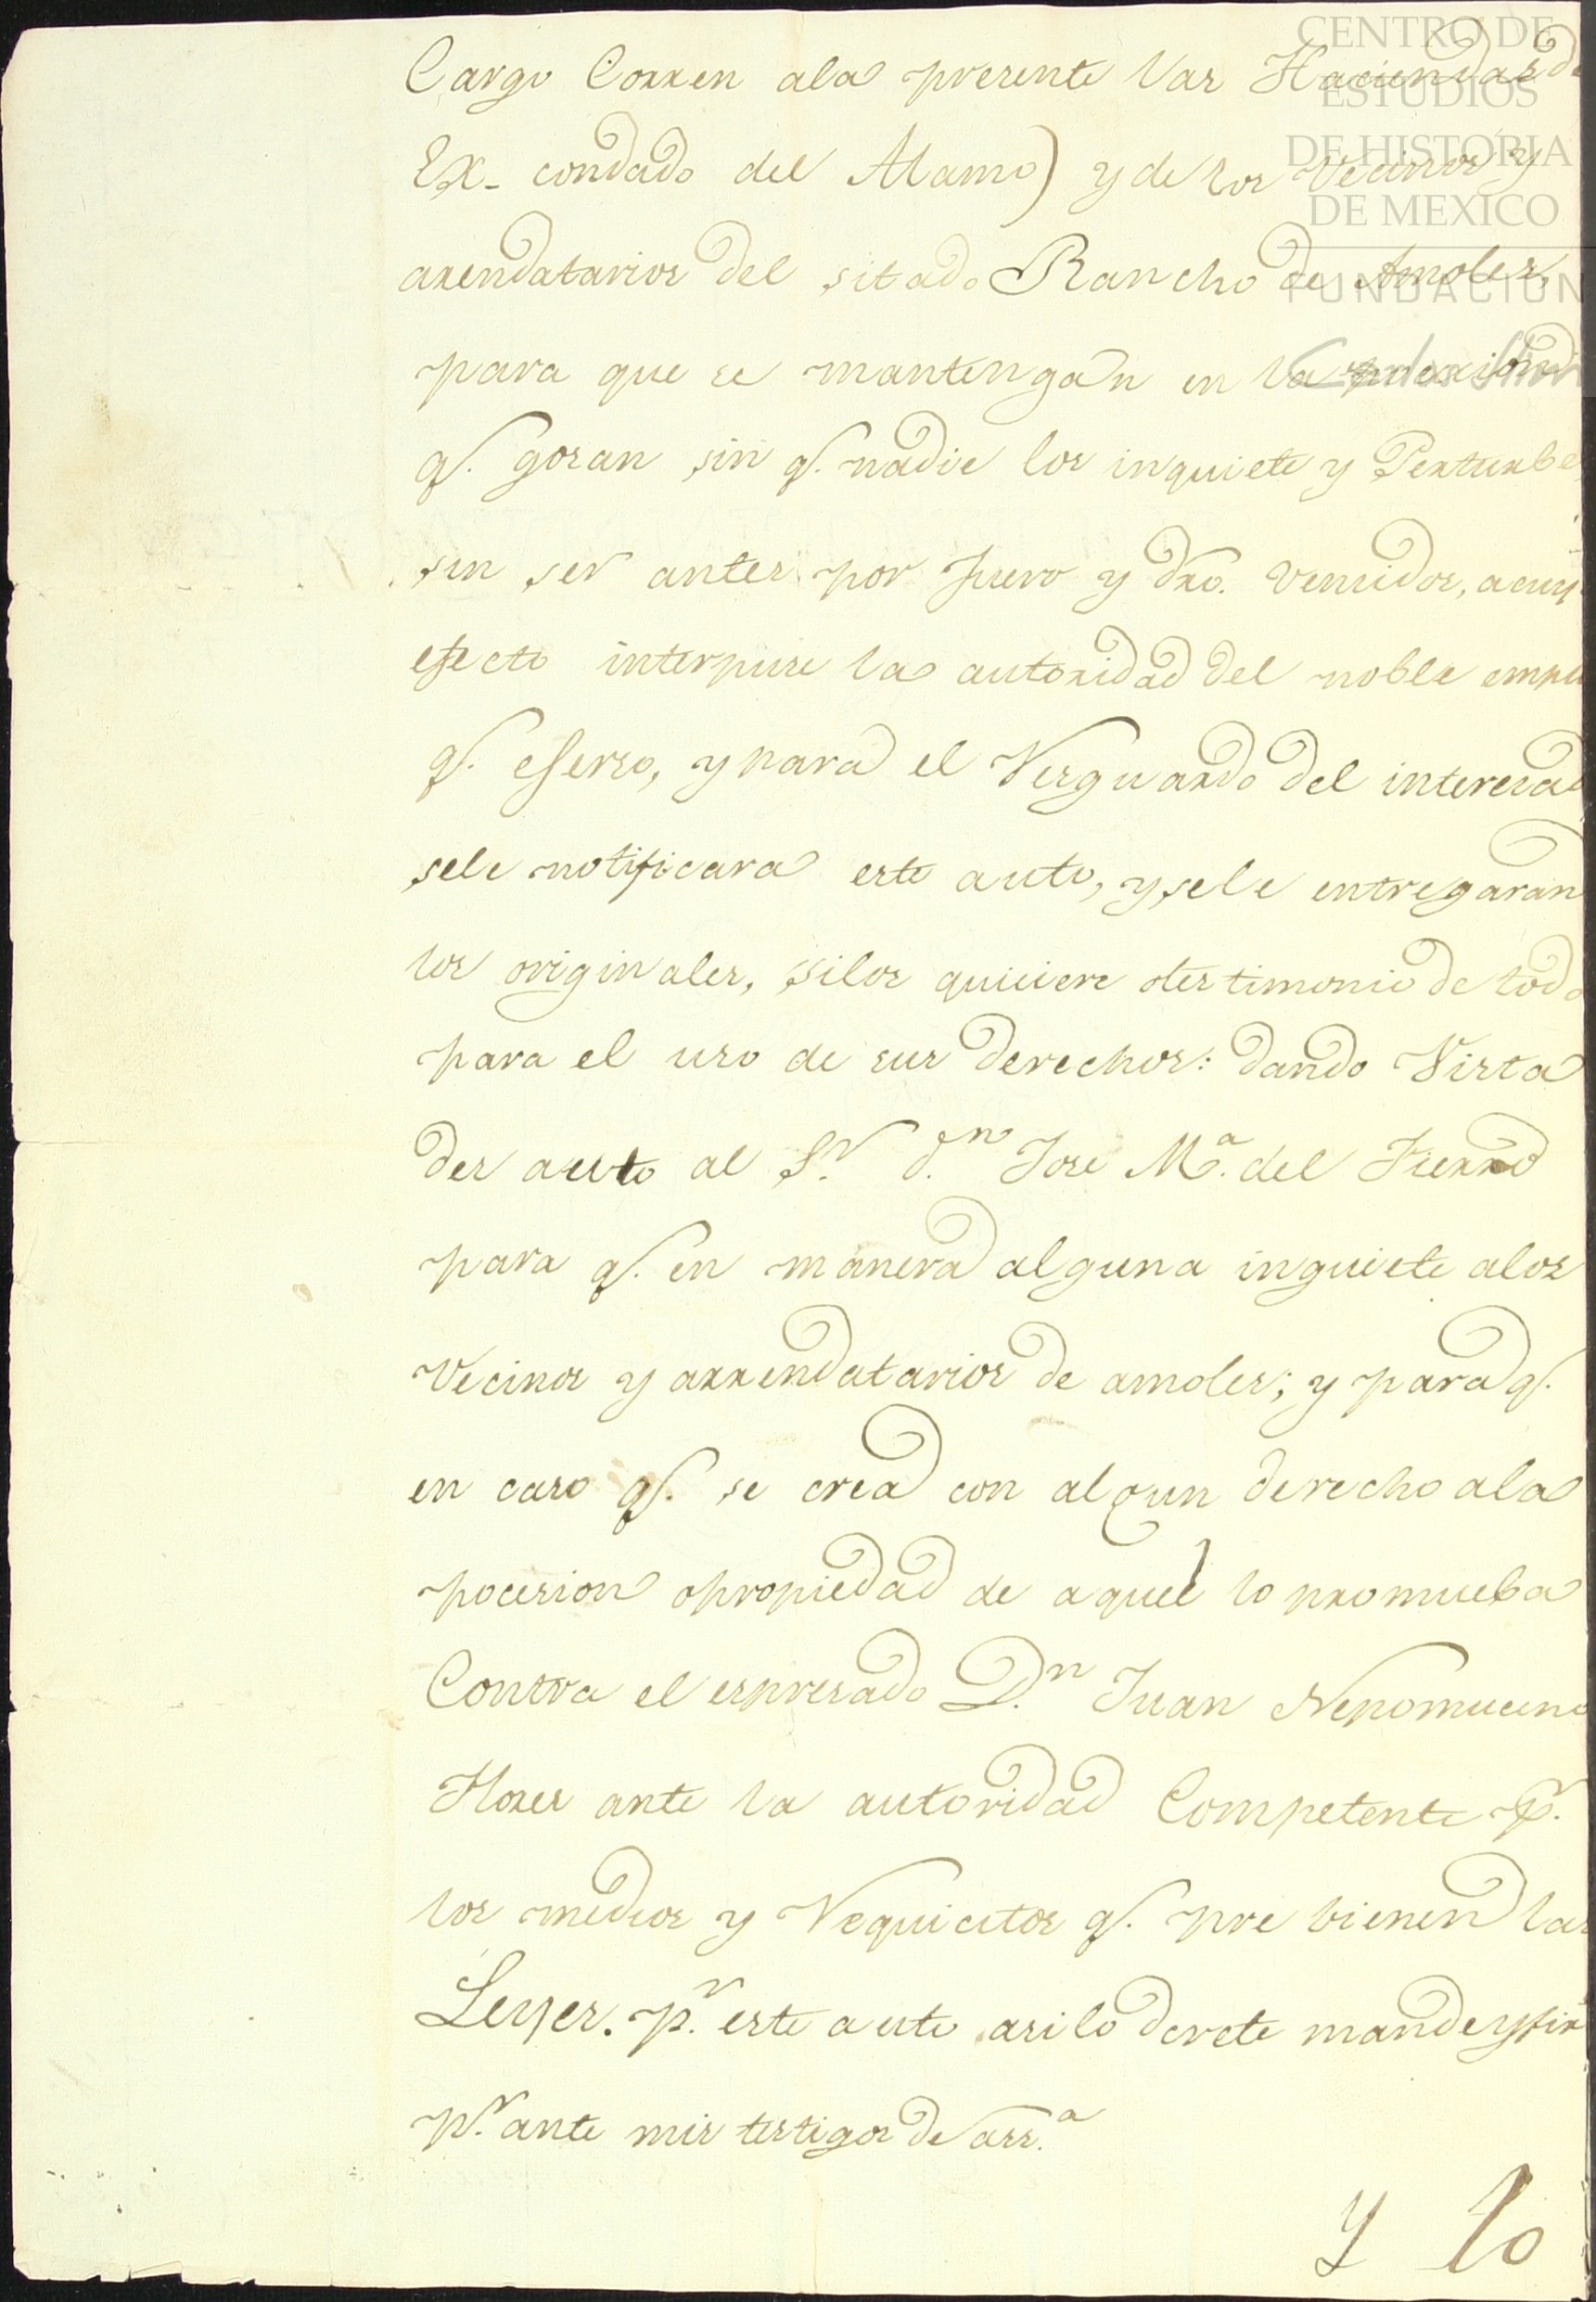 Cargo Corren ala presente las Haciendas de
Ex- condado del Alamo) y de los Vecinos y
arendatarios del sitado Rancho de Amoles,
para que se mantengan en la
q.e gosan sin q.e nadie los inquiete y Perturbe
sin ser antes por fuero y dro. vencidos, acuy
efecto interpuse la autoridad del noble
q.e eferso, y para el resguardo del interesad
sele notificara este auto, y sele entregaran
los originales, silos quiciere otestimonio de todo
para el uso de sus derechos: dando Vista
des auto al S.r d.n Jose M.a del Fierro
para q.e en manera alguna inquiete alos
Vecinos y arrendatarios de amoles; y para q.e
en caso q.e se crea con algun derecho ala
pocesion opropiedad de aquel lo promueba
Contra el espresado D.n Juan Nepomuceno
Flores ante la autoridad Competente p.r
los medios y requicitos q.e pre bienen las
Leyes. p.r este auto asilo decrete mande y fir
p.r ante mis testigos de ass.a
Y lo
CENTRO DE
ESTUDIOS
DE HISTORIA
DE MEXICO
FUNDACIÓN
Carlos Slim